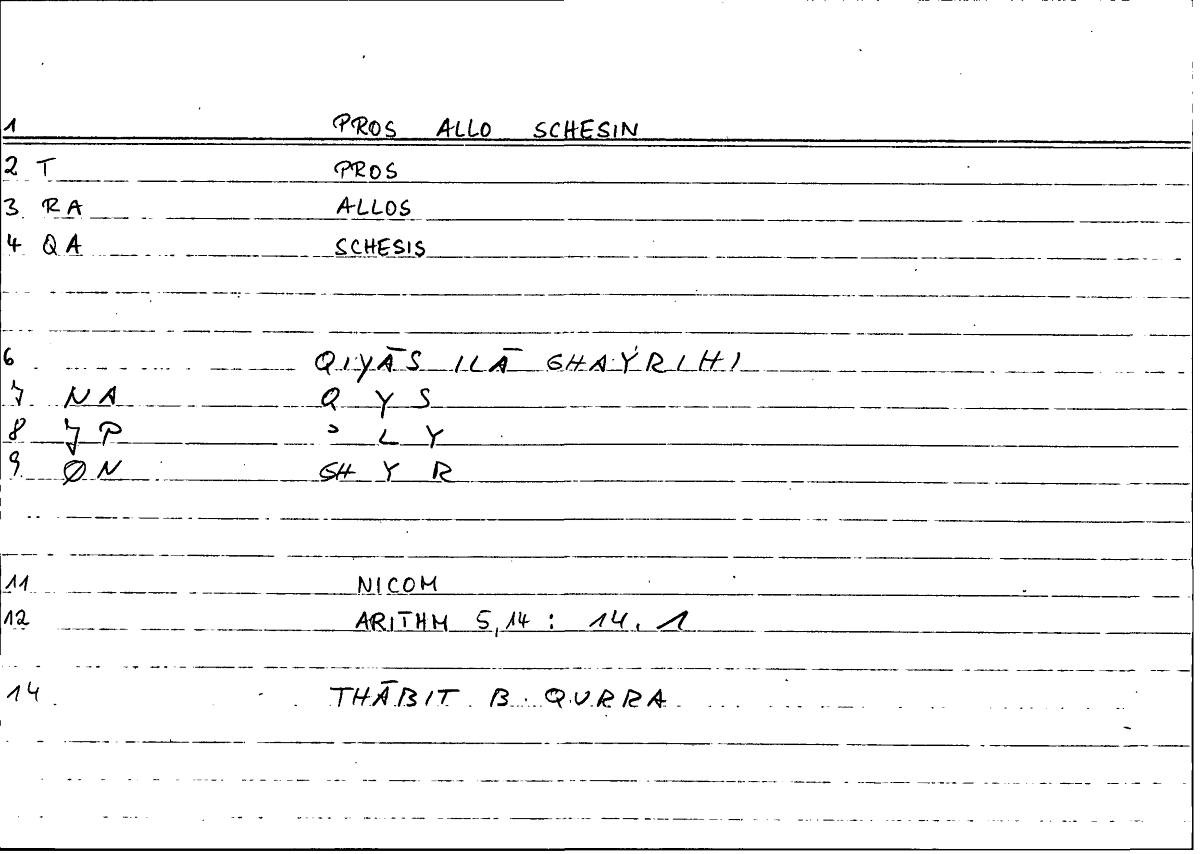 1 PROS ALLO SCHESIN
2 T PROS
3 RA ALLOS
4 QA SCHESIS
6 QIYĀS ILĀ GHAYRIHI
7 NA Q Y S
8 7P ʾ L Y
9 ØN GH Y R
11 NICOM
12 ARITHM 5,14 : 14.1
14 THĀBIT B. QURRA